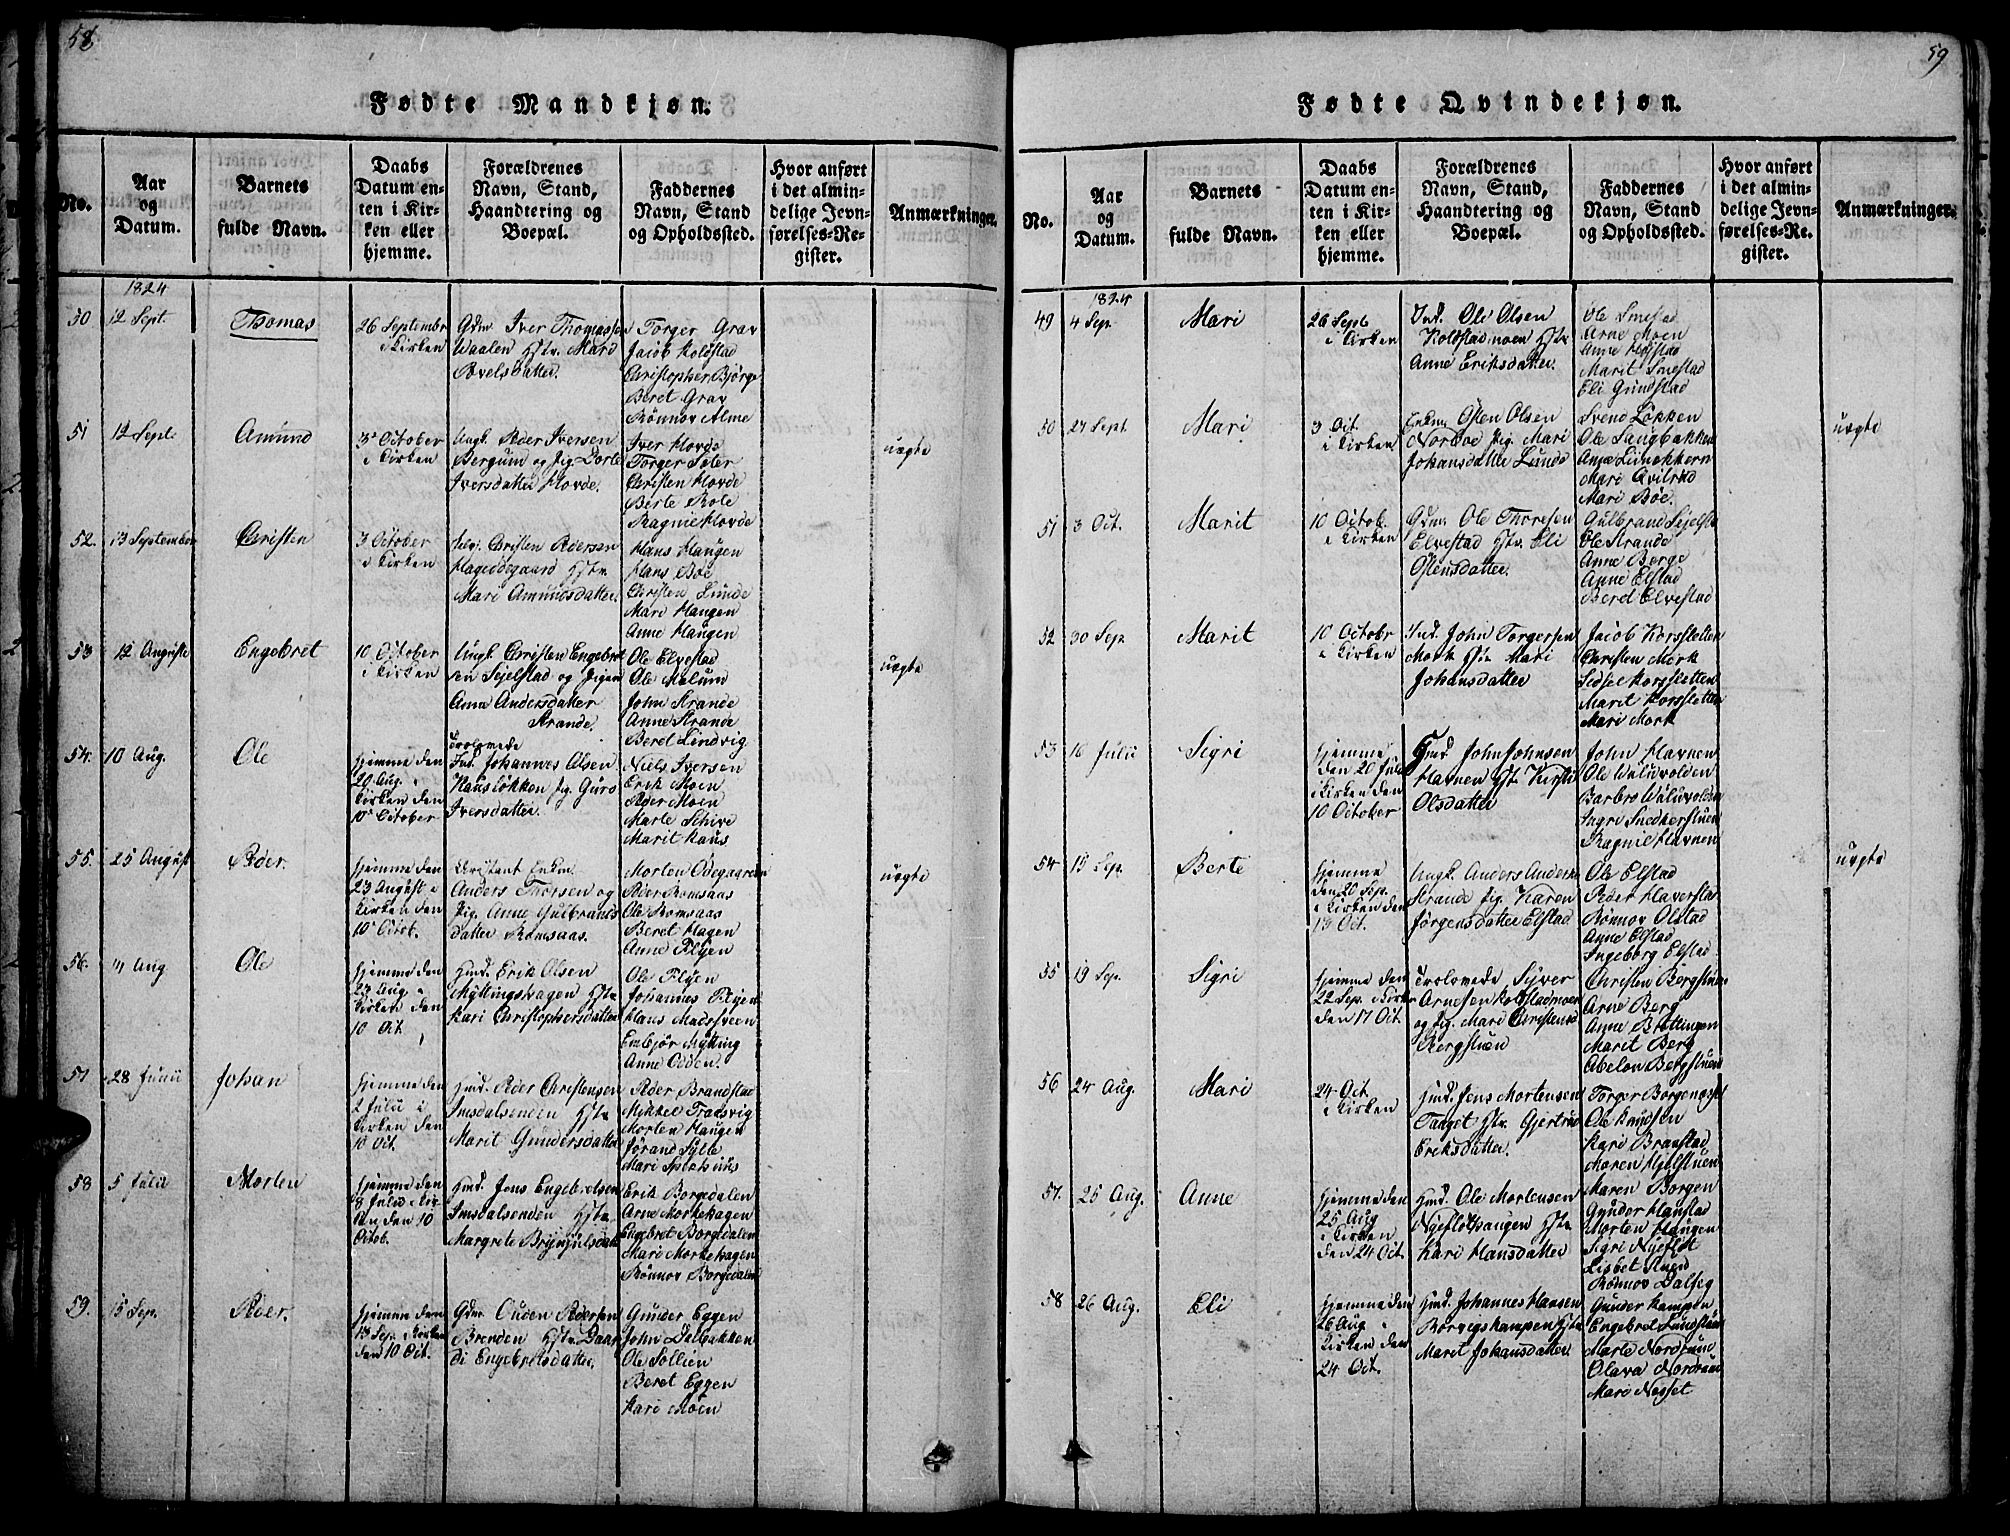 58
Fødte Mandkjøn.
No.
Aar og Datum.
Barnets fulde Navn.
Daabs Datum enten i Kirken eller hjemme.
Forældrenes Navn, Stand, Haandtering og Boepæl.
Faddernes Navn, Stand og Opholdssted.
Hvor anført i det almindelige Jevnførelses-Register.
Anmærkninger.
1824
50
12 Sept.
Thomas
26 Septembr
i Kirken
Gdm Iver Thomassen
Waalen Hstr. Mari
Povelsdatter.
Torger Grav
Jacob Kolstad
Christopher Bjørge
Beret Grav
Rönnov Alme
51
12 Sept.
Amund
3 October
i Kirken
Ungk. Peder Iversen
Bergum og Pig. Dorte
Iversdatter Hovde.
Iver Hovde
Torger Seter
Christen Hovde
Berte Bole
Ragnie Hovde
uægte
52.
13 September
Christen
3 October
i Kirken
Selv. Christen Pedersen
Hageödegaard Hstr
Mari Amundsdatter.
Hans Haugen
Hans Boe
Christen Lunde
Mari Haugen
Anne Haugen
53
12 Auguste
Engebret
10 October
i Kirken
Ungk. Christen Engebret
sen Sejelstad og Pigen
Anne Andersdatter
Strande.
Ole Elvestad
Ole Melum
John Strande
Anne Strande
Beret Lindvig
uægte
54.
10 Aug.
Ole
hjemme den
20 Aug. i
Kirken den
10 October
Trolovede
Ind. Johannes Olsen
Hauslökken Pig. Guro
Iversdatter.
Niels Iversen
Erik Moen
Peder Moen
Marte Schive
Marit Haus
55.
25 August
Peder.
hjemme den
23 August i
Kirken den
10 Octob.
Anders Thorsen og
Pig. Anne Gulbrands
datter Romsaas.
Morten Ödegaarden
Peder Romsaas
Ole Romsaas
Beret Hagen
Anne Flyen
uægte
56.
11 Aug
Ole
hjemme den
23 Aug. i
Kirken den
10 Oct.
Hmd. Erik Olsen
Myttingshagen Hstr
Kari Christophersdatter
Ole Flyen
Johannes Flyen
Hans Madsveen
Embjør Mytting
Anne Odden.
57
28 Junii
Johan
hjemme den
2 Julii i
Kirken den
10 Oct.
Hmd. Peder Christensen
Imsdalsenden Hstr
Marit Gundersdatter
Peder Brandstad
Mikkel Traasvig
Morten Haugen
Jörand Sylle
58
5 Julii
Morten
hjemme den
8 Julii i Kir
ken den 10
Octob.
Hmd. Jens Engebretsen
Imsdalsenden Hstr
Margrete Brynjulsdatt
Erik Borgedalen
Arne Morkehagen
Engebret Borgedalen
Mari Morkehagen
Rönnov Borgedalen
59.
15 Sep.
Peder.
hjemme den
13 Sep. i Kirken
den 10 Oct.
Gdm Ouden Pedersen
Brenden Hstr. Daar
di Engebretsdatter.
Gunder Eggen
John Dalbakken
Ole Sollien
Beret Eggen
Kari Moen
59
Fødte Qvindekjøn.
No.
Aar og Datum.
Barnets fulde Navn.
Daabs Datum enten i Kirken eller hjemme.
Forældrenes Navn, Stand, Haandtering og Boepæl.
Faddernes Navn, Stand og Opholdssted.
Hvor anført i det almindelige Jevnførelses-Register.
Anmærkninger.
1824
49
4 Sep.
Mari
26 Sept
i Kirken
Ind. Ole Olsen
Kolstadmoen Hstr
Anne Eriksdatter.
Ole Smestad
Arne Moen
Anne Kolstad
Marit Smestad
Eli Grindstad
50
27 Sept
Mari
3 Oct.
i Kirken
Enkm. Østen Olsen
Nordboe Pig. Mari
Johansdatter Lunde
Svend Løkken
Ole Langbakken
Mari Qvilstad
Mari Bøe.
uægte
51
3 Oct.
Marit
10 Octob.
i Kirken
Gdm Ole Thoresen
Elvestad Hstr. Eli
Østensdatter.
Gulbrand Sejelsta
Ole Strande
Anne Berge
Anne Elstad
Beret Elvestad
52
30 Sep
Marit
10 Octobr
i Kirken
Ind. John Torgersen
Mork Hstr Mari
Johansdatter
Jacob Korssletten
Christen Mork
Sidsel Korssletten
Marit Korssletten
Mari Mork
53
16 Julii
Sigri
hjemme
den 20 Juli
i Kirken den
10 October
Hmd. John Johnsen
Havnen Hstr Kirsti
Olsdatter
John Havnen
Ole Wuluvolden
Barbro Wuluvolden
Ingri Snedkerstuen
Ragnil Havnen
54
15 Sep.
Berte
hjemme
den 20 Sep.
i Kirken den
13 Oct.
Ungk. Anders Anderse
Strande Pig. Karen
Jörgensdatter Elstad
Ole Elstad
Peder Haversta
Rönnov Olstad
Anne Elstad
Ingeborg Elstad
uægte
55
19 Sep.
Sigri
hjemme den
22 Sep. i Kirken
den 17 Oct.
Trolovede Syver
Arnesen Kolstadmoen
og Pig. Mari Christensd
Bergstuen
Christen Bergstuen
Arne Berg
Anne Brettingen
Marit Berg
Abelon Bergstuen
56
24 Aug.
Mari
24 Oct.
i Kirken
Hmd. Jens Mortensen
Tanget Hstr. Gjertrud
Eriksdatter.
Ole Knudsen
Kari Branstad
Maren Hjelstuen
57.
25 Aug.
Anne
hjemme den
25 Aug
i Kirken
den 24 Oct.
Hmd. Ole Mortensen
Nyeflöthaugen Hstr
Kari Hansdatter
Maren Borgen
Gunder Hanstad
Morten Haugen
Sigri Nyeflöt
Rönnov Dalseg
58
26 Aug.
Eli
hjemme den
26 Aug i
Kirken den
24 Oct.
Hmd. Johannes Hansen
Borvegskampen Hstr
Maret Johansdatter
Gunder Kampen
Engebret Lundstuen
Marte Nordrum
Olava Nordrum
Mari Nesset